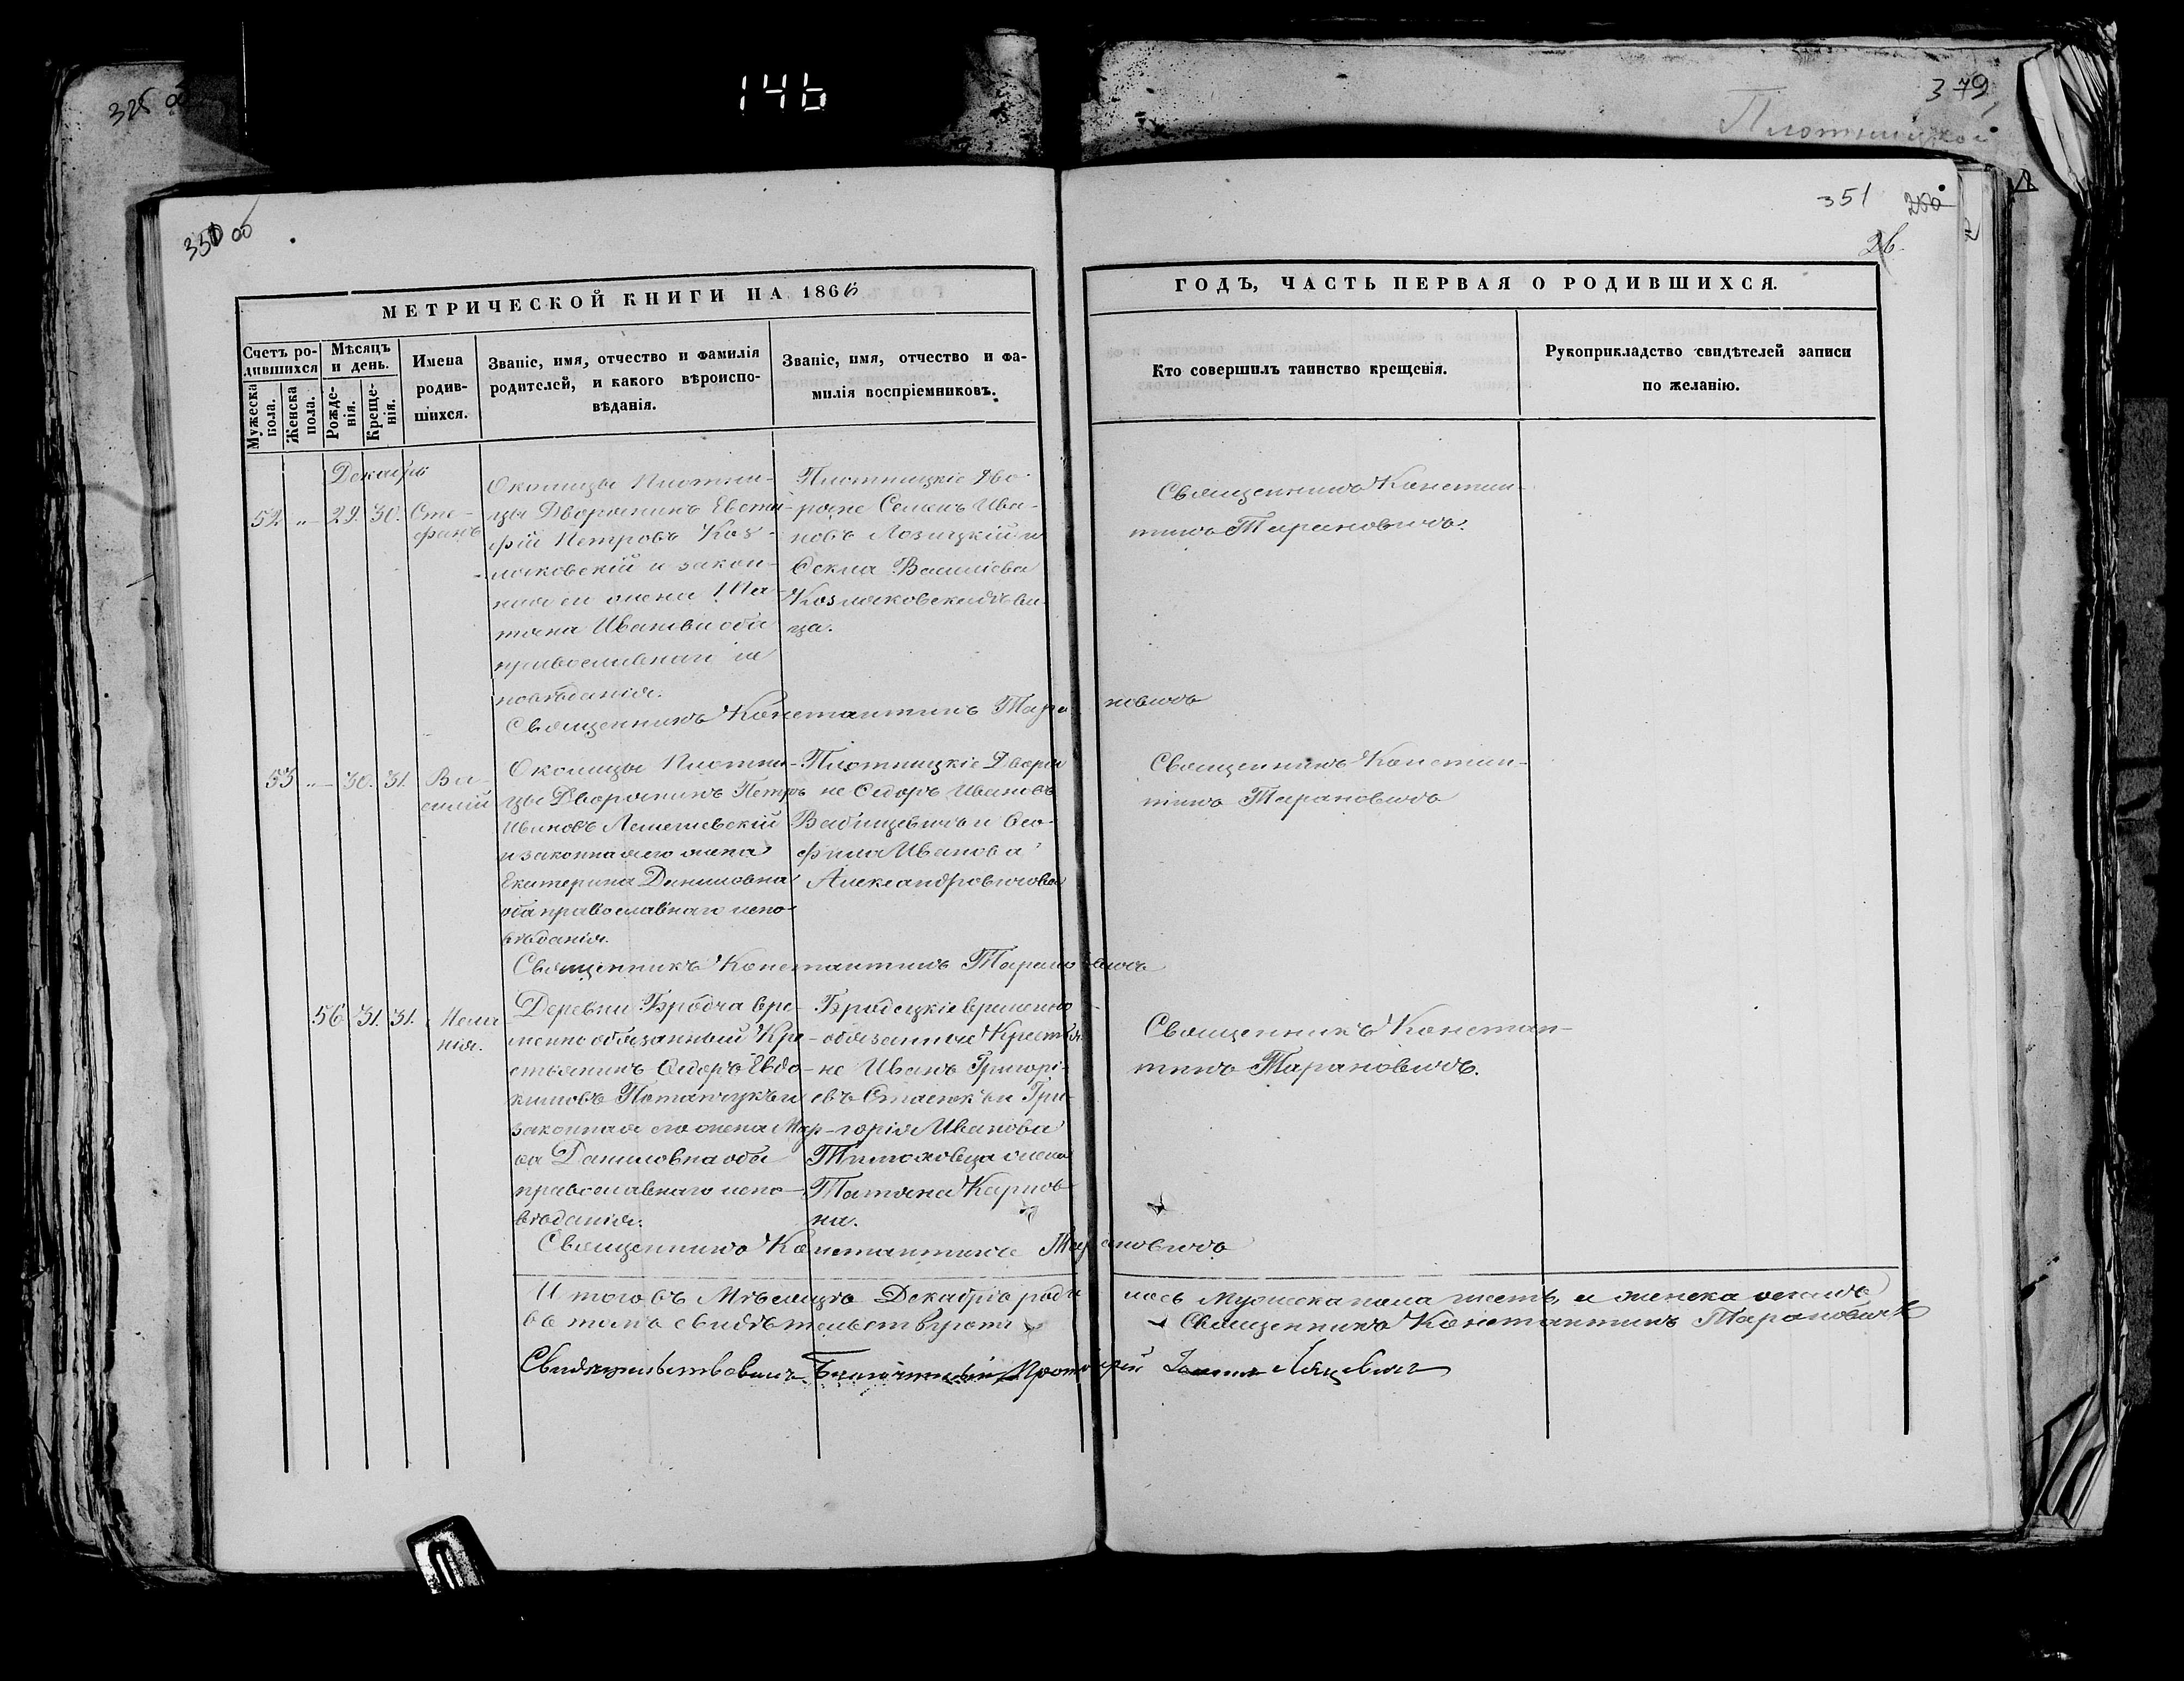 146
379
Плотницкой
350 об
351
26.
МЕТРИЧЕСКОЙ КНИГИ НА 1866
ГОДЪ, ЧАСТЬ ПЕРВАЯ О РОДИВШИХСЯ.
Счетъ ро-
дившихся
Мужеска
пола.
Женска
пола.
Мѣсяцъ
и день.
Рожде-
нія.
Креще-
нія.
Имена
родив-
шихся.
Званіе, имя, отчество и фамилія
родителей, и какого вѣроиспо-
вѣданія.
Званіе, имя, отчество и фа-
милія воспріемниковъ.
Кто совершилъ таинство крещенія.
Рукоприкладство свидѣтелей записи
по желанію.
Декабрь
52 „ 29. 30. Сте-
фанъ
Околицы Плотни-
цы Дворянинъ Евста-
фій Петровъ Коз-
ляковскій и закон-
ная его жена Та-
тіана Иванова оба
православнаго ис
повѣданія.
Плотницкіе Дво-
ряне Семенъ Ива-
новъ Лозицкій и
Ѳекла Василіева
Козляковская дѣви-
ца.
Священникъ Констан-
тинъ Тарановичъ.
Священникъ Константинъ Тарановичъ
53 „ 30. 31. Ва-
силій
Околицы Плотни-
цы Дворянинъ Петръ
Ивановъ Лемешевскій
и законная его жена
Екатерина Даниловна
оба православнаго испо-
вѣданія.
Плотницкіе Дворя
не Ѳедоръ Ивановъ
Вабищевичъ и Ѳео-
фила Иванова
Александровичова
Священникъ Констан-
тинъ Тарановичъ
Священникъ Константинъ Тарановичъ
56 31. 31. Мела
нія.
Деревни Бродча вре-
менно обязанный Кре-
стьянинъ Ѳедоръ Евдо-
кимовъ Потапчукъ и
законная его жена Мар-
ѳа Даниловна оба
православнаго испо-
вѣданія.
Бродецкіе временно
обязанные Крестья
не Иванъ Григорі-
евъ Стасюкъ и Гри-
горія Иванова
жена
Татіана Карпов
на.
Священникъ Констан-
тинъ Тарановичъ.
Священникъ Константинъ Тарановичъ
Итого въ Мѣсяцѣ Декабрѣ роди лось Мужеска пола шесть, а женска
въ томъ свидѣтельствуютъ Священникъ Константинъ Тарановичъ
Свидѣтельствовалъ Благочинный Протоіерей